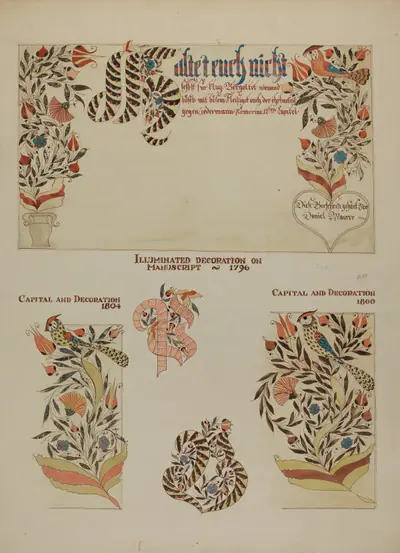 Haltet euch nicht
selbst für klug Vergeltet niemand
böses mit bösem Fleißiget euch der ehrbarkeit
gegen jedermann Römer im 12ten Capitel
Diese Vorschrift gehört
Daniel
ILLUMINATED DECORATION ON
MANUSCRIPT ~ 1796
CAPITAL AND DECORATION
1804
CAPITAL AND DECORATION
1800